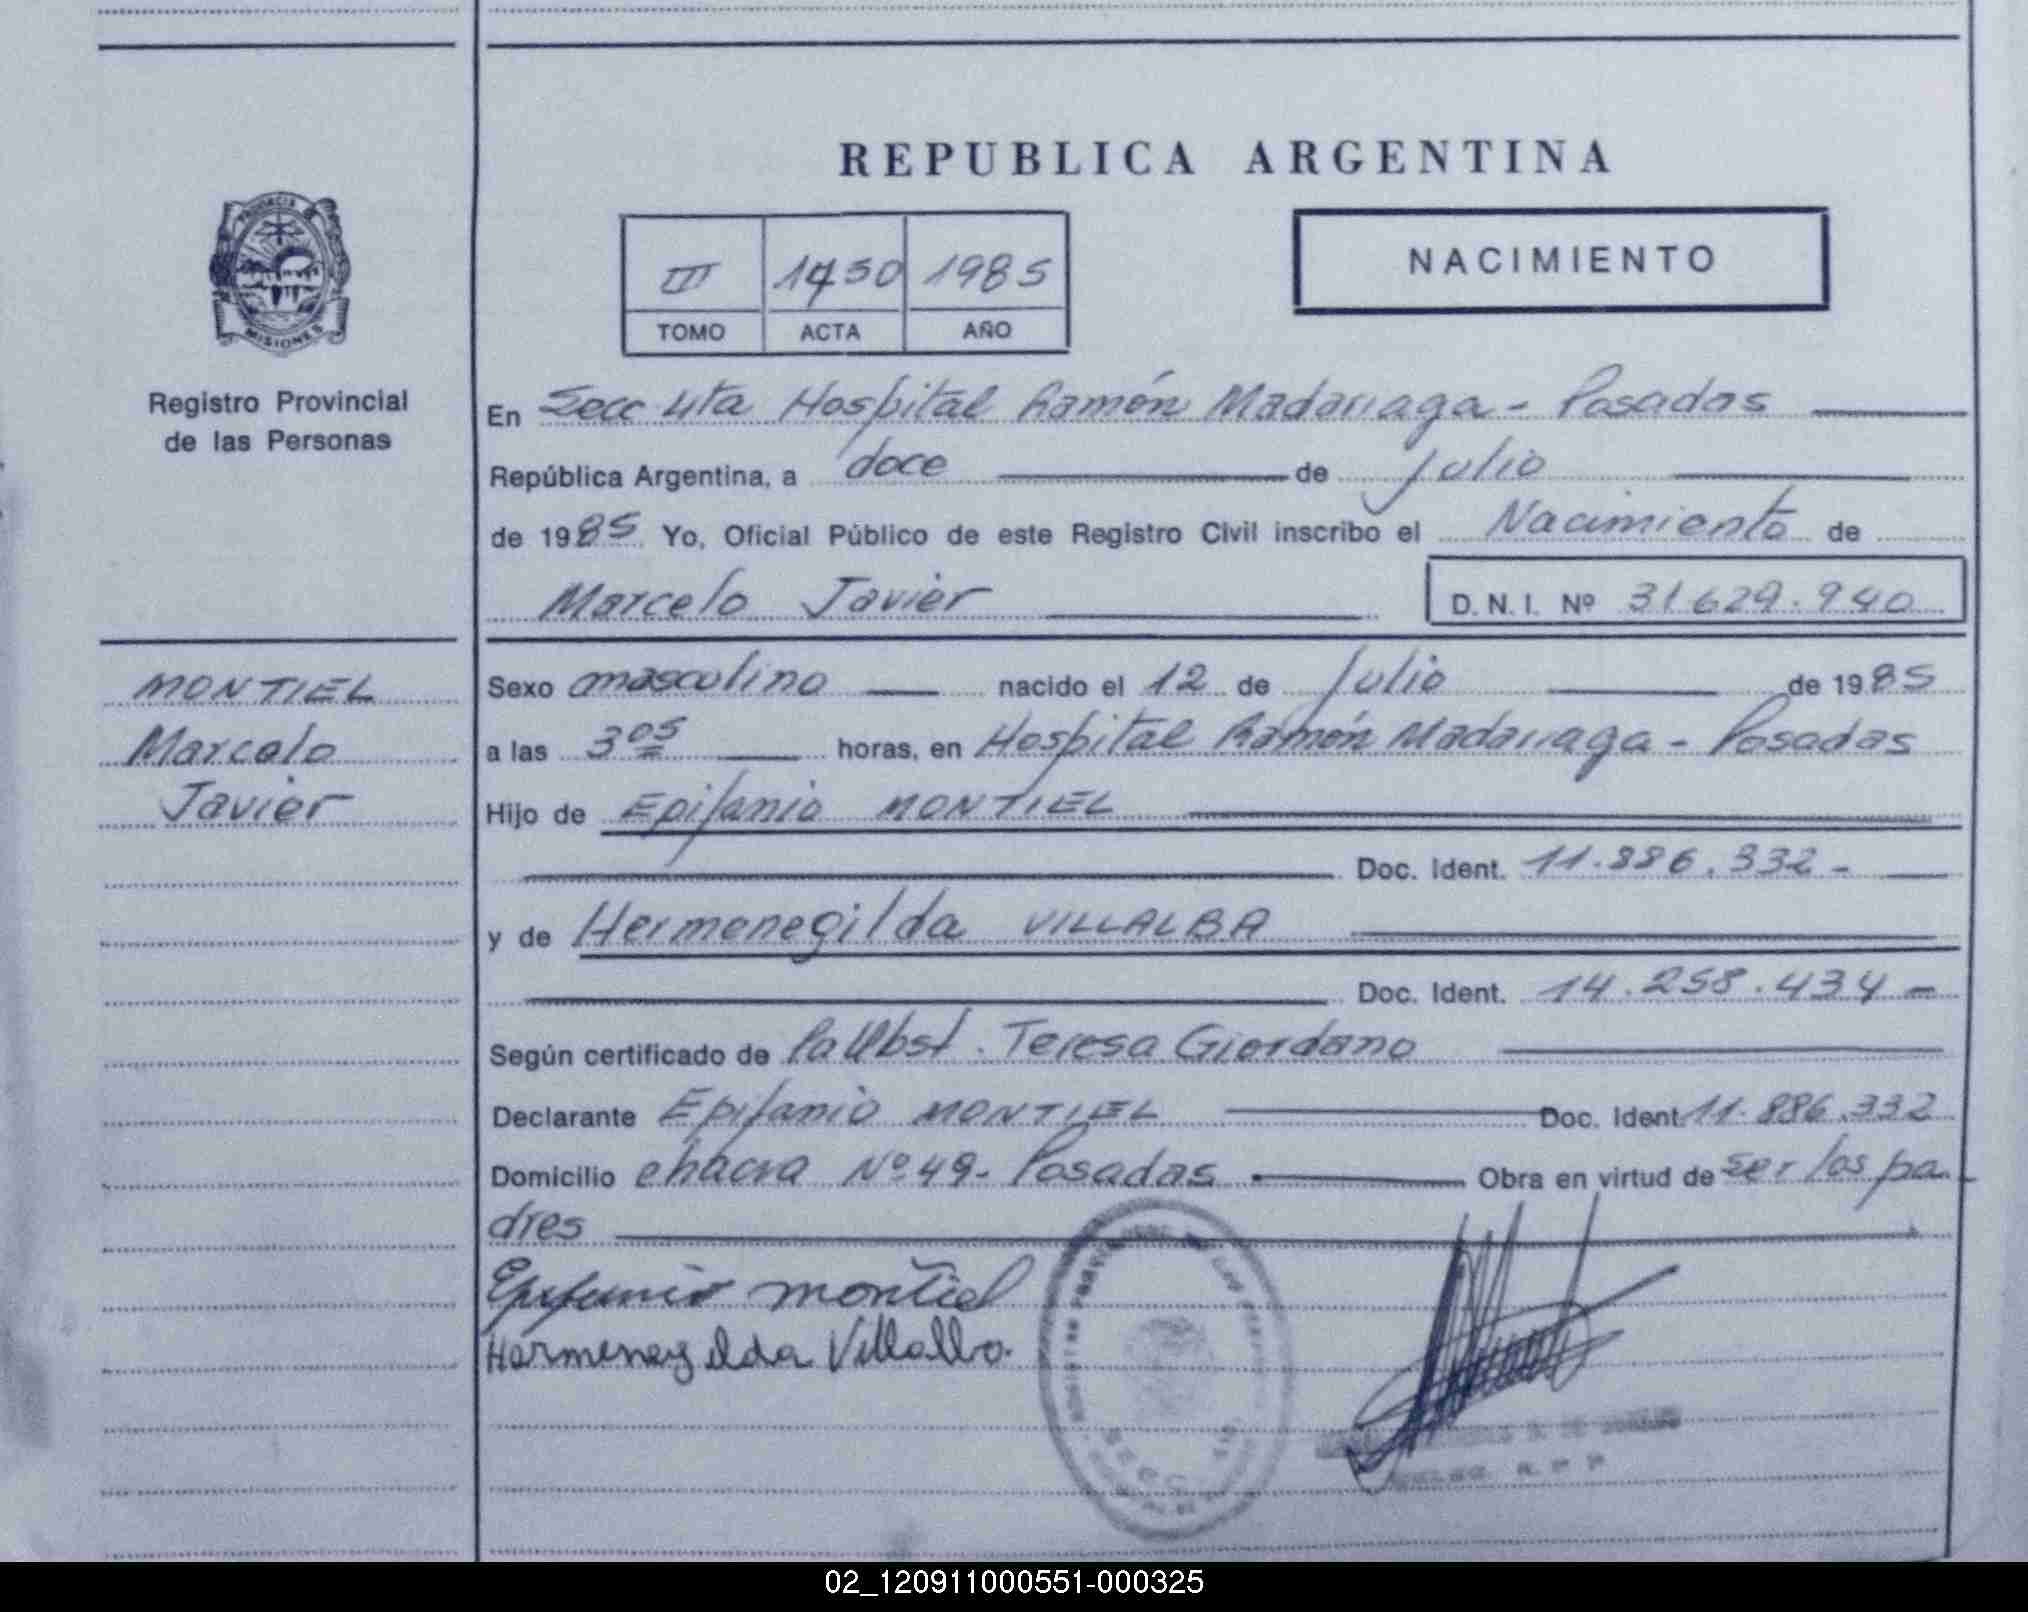 REPUBLICA ARGENTINA
PROVINCIA
MISIONES
Registro Provincial
de las Personas
III 1450 1985
TOMO ACTA AÑO
NACIMIENTO
En Secc 4ta Hospital Ramón Madariaga - Posadas
República Argentina, a doce de julio
de 1985 Yo, Oficial Público de este Registro Civil inscribo el Nacimiento de
Marcelo Javier D.N.I. Nº 31629.940
MONTIEL
Marcelo
Javier
Sexo masculino nacido el 12 de Julio de 1985
a las 3 05 horas, en Hospital Ramón Madariaga - Posadas
Hijo de Epifanio MONTIEL
Doc. Ident. 11.886.332 -
y de Hermenegilda VILLALBA
Doc. Ident. 14.258.434 -
Según certificado de Teresa Giordano
Declarante Epifanio MONTIEL Doc. Ident. 11.886.332
Domicilio chacra Nº 49 - Posadas Obra en virtud de ser los pa
dres
Epifanio montiel
Hermenegilda Villalba.
SECC.
02_120911000551-000325